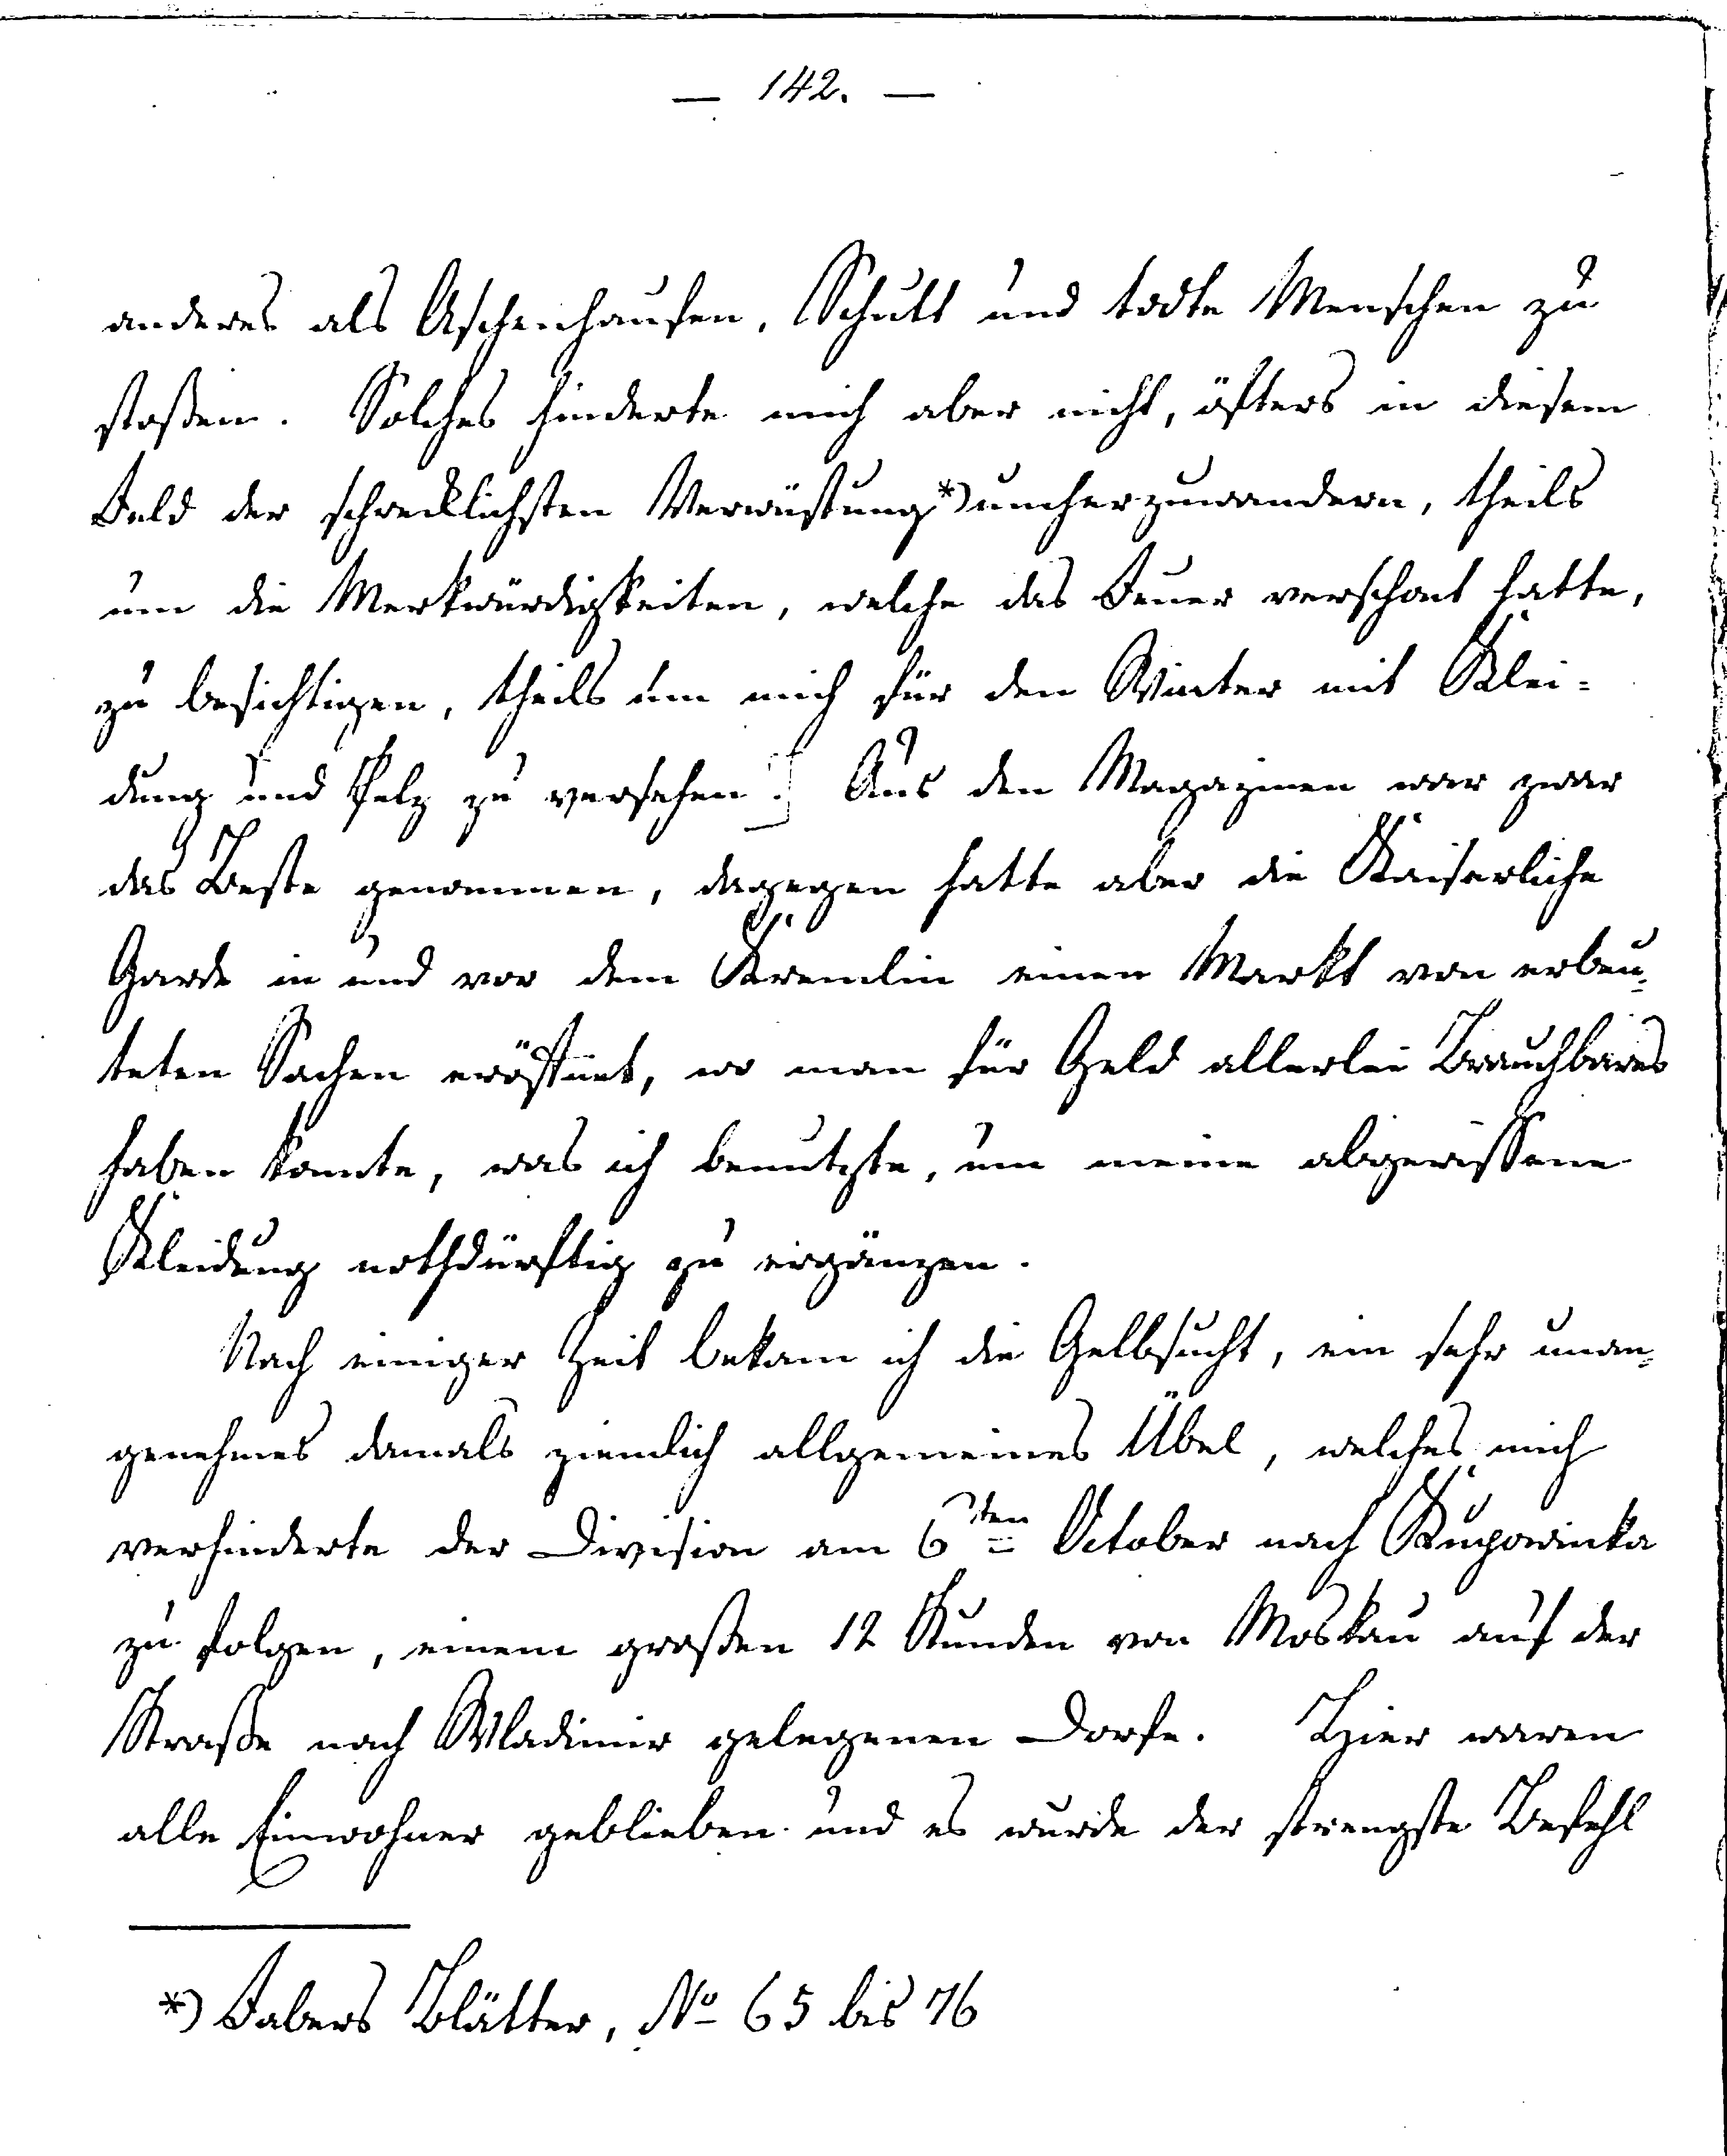 — 142. —
anderes als Aschenhaufen, Schutt und todte Menschen zu
stoßen. Solches hinderte mich aber nicht, öfters in diesem
Feld der schrecklichsten Verwüstung*) umherzuwandern, theils
um die Merkwürdigkeiten, welche das Feuer verschont hatte,
zu besichtigen, theils um mich für den Winter mit Klei-
dung und Pelz zu versehen.] Aus den Magazinen war zwar
das Beste genommen, dagegen hatte aber die Kaiserliche
Garde in und vor dem Kremlin einen Markt von erbeu-
teten Sachen eröffnet, wo man für Geld allerlei Brauchbares
haben konnte, was ich benutzte, um meine abgerissene
Kleidung nothdürftig zu ergänzen.
Nach einiger Zeit bekam ich die Gelbsucht, ein sehr unan-
genehmes damals ziemlich allgemeines Übel, welches mich
verhinderte der Division am 6ten October nach
zu folgen, einem großen 12 Stunden von Moskau auf der
Straße nach Wladimir gelegenen Dorfe. Hier waren
alle Einwohner geblieben und es wurde der strengste Befehl
*) Fabers Blätter, No 65 bis 76